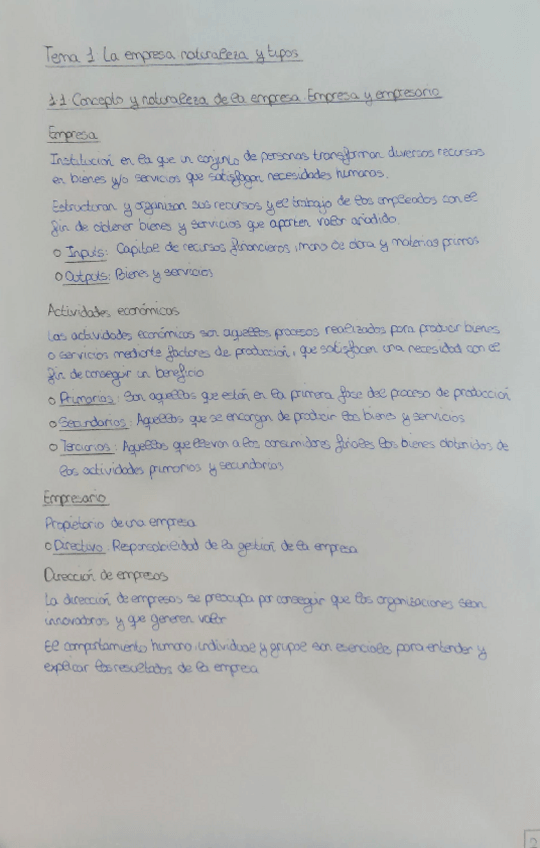 Tema 1 La empresa naturaleza y tipos
1.1 Concepto y naturaleza de la empresa. Empresa y empresario
Empresa
Institución en la que un conjunto de personas transforman diversos recursos
en bienes y/o servicios que satisfagan necesidades humanas.
Estructuran y organizan sus recursos y el trabajo de los empleados con el
fin de obtener bienes y servicios que aporten valor añadido.
o Inputs: Capital de recursos financieros, mano de obra y materias primas
o Outputs: Bienes y servicios
Actividades económicas
Las actividades económicas son aquellos procesos realizados para producir bienes
o servicios mediante factores de producción, que satisfacen una necesidad con el
fin de conseguir un beneficio
o Primarias: Son aquellas que están en la primera fase del proceso de producción
o Secundarias: Aquellas que se encargan de producir los bienes y servicios
o Terciarias: Aquellas que llevan a los consumidores finales los bienes obtenidos de
las actividades primarias y secundarias
Empresario
Propietario de una empresa
o Directivo: Responsabilidad de la gestión de la empresa
Dirección de empresas
La dirección de empresas se preocupa por conseguir que las organizaciones sean
innovadoras y que generen valor
El comportamiento humano, individual y grupal son esenciales para entender y
explicar los resultados de la empresa
2